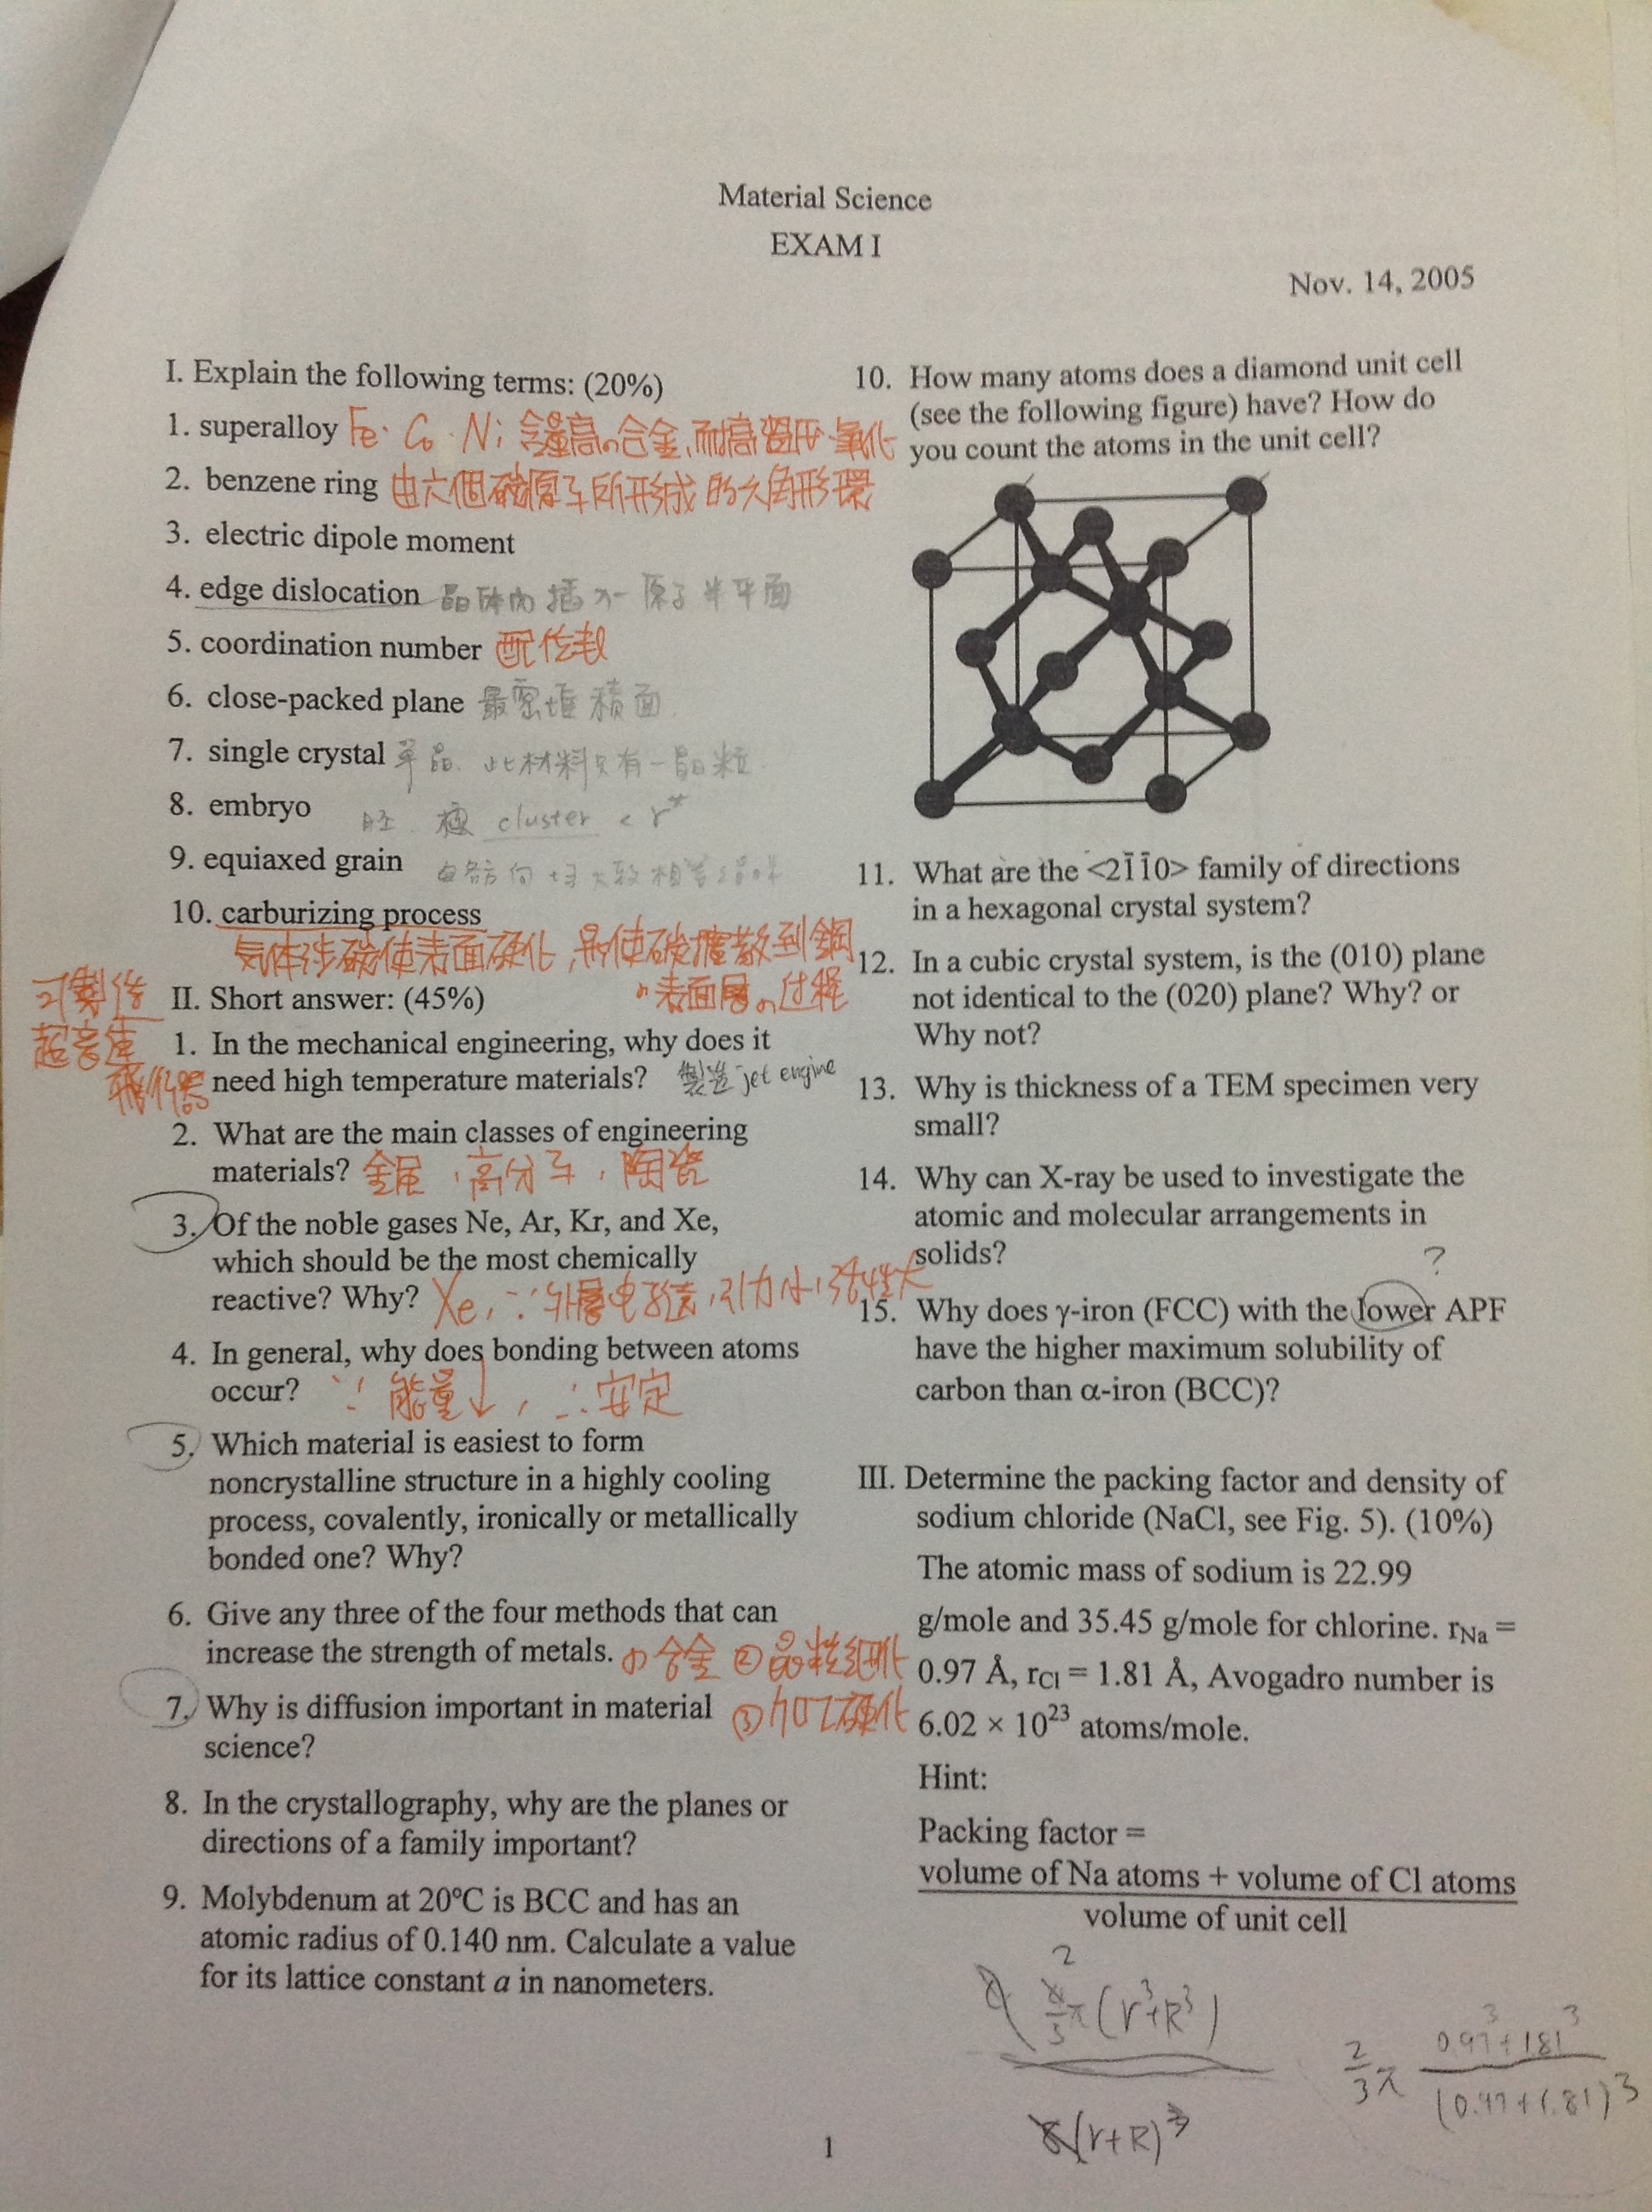 Material Science
EXAM I
Nov. 14, 2005
I. Explain the following terms: (20%)
1. superalloy Fe. Co. Ni 含量高の合金,耐高溫 氧化
2. benzene ring 由六個碳原子所形成的六角形環
3. electric dipole moment
4. edge dislocation 晶体內插入一原子半平面
5. coordination number 配位數
6. close-packed plane 最密堆積面
7. single crystal 單晶. 此材料只有一晶粒
8. embryo 胚. cluster < r*
9. equiaxed grain 各方向 大致相等
10. carburizing process
気体渗碳使表面硬化, 使碳擴散到鋼
の表面層の过程
可製造
超音速
飛行器
II. Short answer: (45%)
1. In the mechanical engineering, why does it
need high temperature materials? 製造 jet engine
2. What are the main classes of engineering
materials? 金屬,高分子,陶瓷
3. Of the noble gases Ne, Ar, Kr, and Xe,
which should be the most chemically
reactive? Why? Xe, ∵外層电子遠,引力小,活性大
4. In general, why does bonding between atoms
occur? ∵能量↓, ∴安定
5. Which material is easiest to form
noncrystalline structure in a highly cooling
process, covalently, ironically or metallically
bonded one? Why?
6. Give any three of the four methods that can
increase the strength of metals. ① 合金 ② 晶粒細化
③ 加工硬化
7. Why is diffusion important in material
science?
8. In the crystallography, why are the planes or
directions of a family important?
9. Molybdenum at 20ºC is BCC and has an
atomic radius of 0.140 nm. Calculate a value
for its lattice constant a in nanometers.
10. How many atoms does a diamond unit cell
(see the following figure) have? How do
you count the atoms in the unit cell?
11. What are the <21̄1̄0> family of directions
in a hexagonal crystal system?
12. In a cubic crystal system, is the (010) plane
not identical to the (020) plane? Why? or
Why not?
13. Why is thickness of a TEM specimen very
small?
14. Why can X-ray be used to investigate the
atomic and molecular arrangements in
solids?
?
15. Why does γ-iron (FCC) with the lower APF
have the higher maximum solubility of
carbon than α-iron (BCC)?
III. Determine the packing factor and density of
sodium chloride (NaCl, see Fig. 5). (10%)
The atomic mass of sodium is 22.99
g/mole and 35.45 g/mole for chlorine. rNa =
0.97 Å, rCl = 1.81 Å, Avogadro number is
6.02 × 10²³ atoms/mole.
Hint:
Packing factor =
volume of Na atoms + volume of Cl atoms
volume of unit cell
2
4/3 π (r³+R³)
8(r+R)³
2/3 π
0.97³+1.81³
(0.97+1.81)³
1